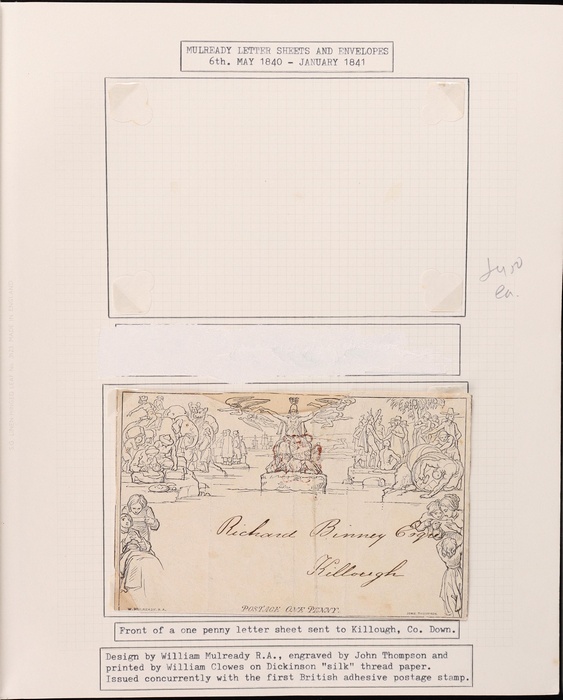 MULREADY LETTER SHEETS AND ENVELOPES
6th. MAY 1840 - JANUARY 1841
ea.
Richard Binney Esqre
Killough
W. MULREADY R.A.
POSTAGE ONE PENNY.
JOHN THOMPSON
Front of a one penny letter sheet sent to Killough, Co. Down.
Design by William Mulready R.A., engraved by John Thompson and
printed by William Clowes on Dickinson "silk" thread paper.
Issued concurrently with the first British adhesive postage stamp.